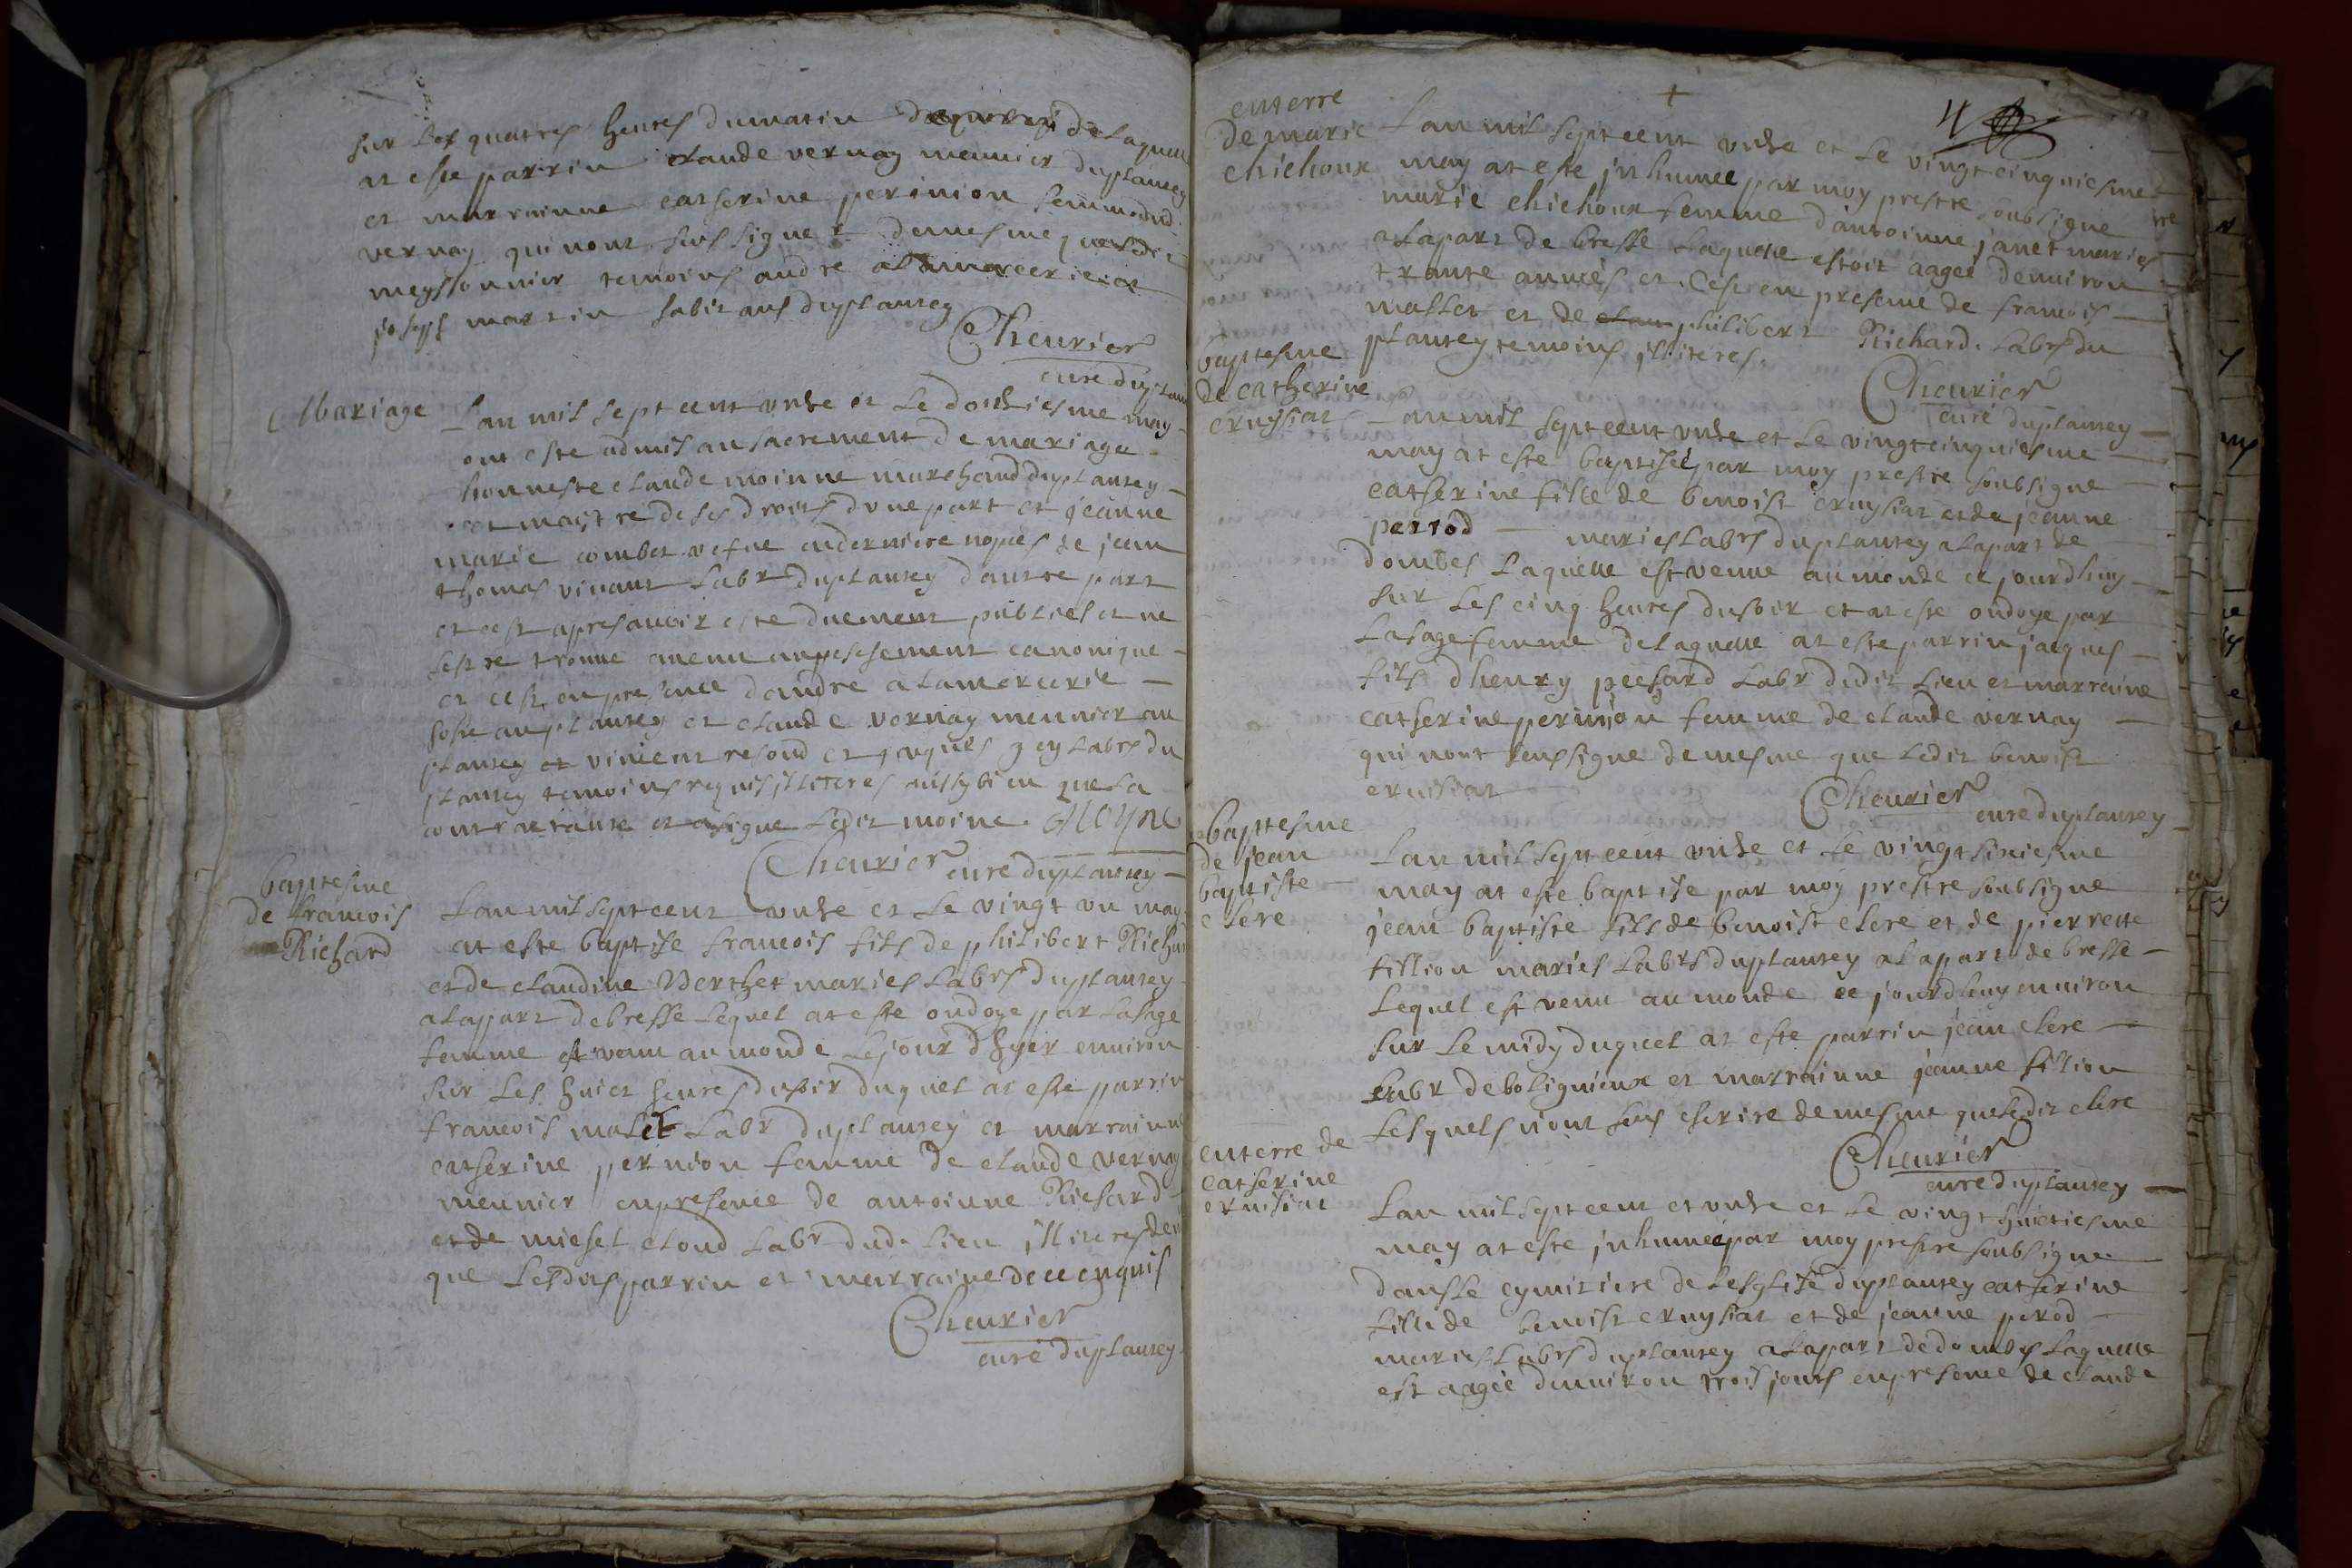 sur les quatres heures du matin de laquelle
at este parrin claude vernay meunier duplantey
et marrainne catherine perinion femme dud.
vernay qui nont sus signer demesme que ledit
meyssonnier temoins andre alamercerie et
joseph martin habitans duplantey
Cheurier
cure duplantey
Mariage
Lan mil sept cent unze et le douziesme may
ont este admis au sacrement de mariage
honneste claude moinne marchand duplantey
et maistre de ses droits dune part et jeanne
marie combet vefue en derniere nopces de jean
thomas vivant labr duplantey dautre part
et cest apres avoir este duement publies et ne
sest retrouve aucun empeschement canonique
et cest en presence dandre alamercerie
hoste auplantey et claude vernay meunier au
plantey et vincent resond et jacques gey labrs du
plantey temoins requis illiteres aussy bien que la
contractante et a signe ledit moine. Moyne
Cheurier cure duplantey
baptesme
de francois
Richard
Lan mil sept cent unze et le vingt un may
at este baptise francois fils de philibert Richard
et de claudine Berthet maries labrs duplantey
alapart debresse lequel at este ondoye par la sage
femme est venu au monde le jour dhyer environ
sur les huict heures dusoir duquel at este parrin
francois malet labr duplantey et marrainne
catherine pernion femme de claude vernay
meunier en presence de antoinne Richard
et de michel cloud labr dud. lieu illiteres de
que lesdits parrin et marraine de ce enquis
Cheurier
cure duplantey
4
enterre
de marie
chichoux
Lan mil sept cent unze et le vingt cinquiesme
may at este inhumee par moy prestre soubsigne
marie chichoux femme dantoinne janet maries
alapart de bresse laquelle estoit aagee denviron
trante annees et cest en presence de francois
mallet et de philibert Richard labrs du
plantey temoins illiteres.
Cheurier
cure duplantey
baptesme
de catherine
cruysiat
Lan mil sept cent unze et le vingt cinquiesme
may at este baptisee par moy prestre soubsigne
catherine fille de benoist cruysiat et de jeanne
perrod maries labrs duplantey alapart de
dombes laquelle est venue au monde ce jourdhuy
sur les cinq heures dusoir et at este ondoye par
la sage femme de laquelle at este parrin jacques
fils dhenry pechard labr dudit lieu et marraine
catherine perinion femme de claude vernay
qui nont sceu signe demesme que ledit benoist
cruisiat
Cheurier
cure duplantey
baptesme
de jean
baptiste
clere
Lan mil sept cent unze et le vingt sixiesme
may at este baptise par moy prestre soubsigne
jean baptiste fils de benoist clere et de pierrette
fillion maries labrs duplantey alapart de bresse
lequel est venu au monde ce jourdhuy environ
sur le midy duquel at este parrin jean clere
labr debolignieux et marrainne jeanne fillion
lesquels nont sus escrire demesme que ledit clere
Cheurier
cure duplantey
enterre de
catherine
cruisiat
Lan mil sept cent et unze et le vingt huictiesme
may at este inhumee par moy prestre soubsigne
dans le cymitiere de lesglise duplantey catherine
fille de benoist cruysiat et de jeanne perod
maries labrs duplantey alapart dedombes laquelle
est aagee denviron trois jours en presence de claude